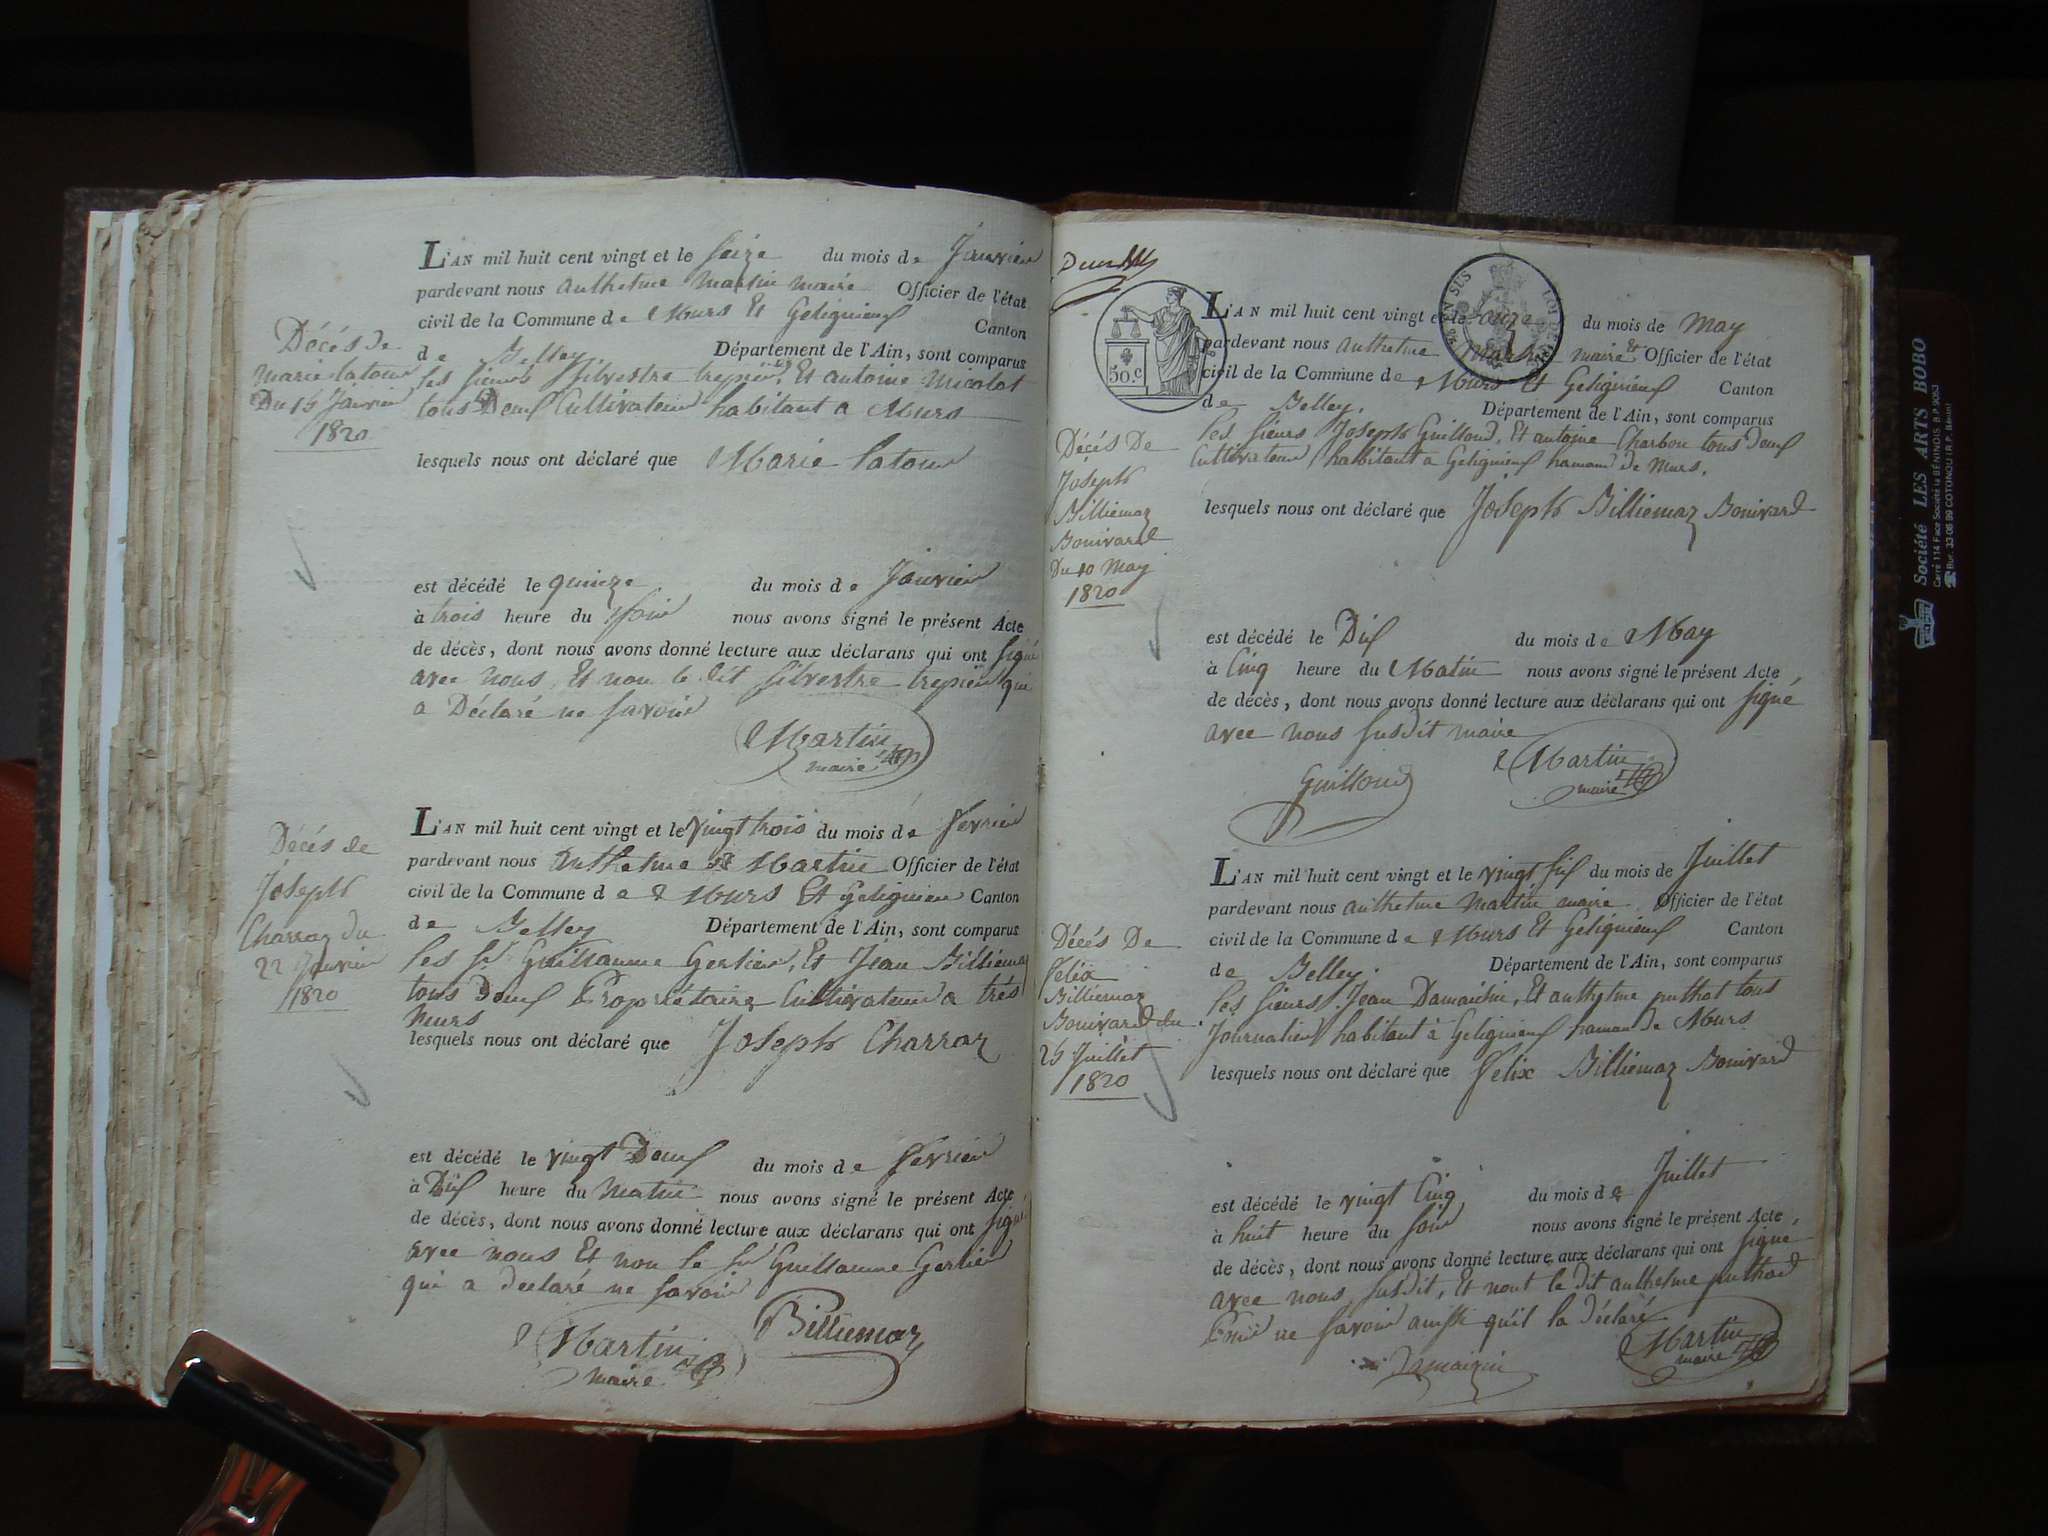 L'AN mil huit cent vingt et le seize du mois de Janvier
pardevant nous anthelme Martin maire Officier de l'état
civil de la Commune de Murs Et Gelignieux Canton
de Belley Département de l'Ain, sont comparus
les sieurs silvestre trepier Et antoine Micolot
tous Deux Cultivateur habitant a Murs
lesquels nous ont déclaré que Marie latour
est décédé le quinze du mois de Janvier
à trois heure du soir nous avons signé le présent Acte
de décès, dont nous avons donné lecture aux déclarans qui ont signé
avec nous, Et non le dit silvestre trepier qui
a Déclaré ne savoir
Martin
maire
Décés de
marie latour
Du 15 Janvier
1820
L'AN mil huit cent vingt et le vingt trois du mois de fevrier
pardevant nous anthelme Martin Officier de l'état
civil de la Commune de Murs Et Gelignieu Canton
de Belley Département de l'Ain, sont comparus
les sr Guillaume Gerlier, Et Jean Billiemaz
tous Deux Propriétaire Cultivateur a
Murs
lesquels nous ont déclaré que Joseph Charraz
est décédé le vingt Deux du mois de fevrier
à Dix heure du Matin nous avons signé le présent Acte
de décès, dont nous avons donné lecture aux déclarans qui ont signé
avec nous Et non le sr Guillaume Gerlier
qui a declaré ne savoir
Martin
maire
Billiemaz
Décés de
Joseph
Charraz du
22 Janvier
1820
50.c
L'AN mil huit cent vingt et le onze du mois de May
pardevant nous anthelme Martin maire et Officier de l'état
civil de la Commune de Murs Et Gelignieux Canton
de Belley. Département de l'Ain, sont comparus
les sieurs Joseph Guilloud, Et antoine Charbon tous deux
Cultivateur habitant a Gelignieux hamau de Murs.
lesquels nous ont déclaré que Joseph Billiemaz Bonivard
est décédé le Dix du mois de May
à Cinq heure du Matin nous avons signé le présent Acte
de décès, dont nous avons donné lecture aux déclarans qui ont signé
avec nous susdit maire
Guilloud
Martin
maire
Décés De
Joseph
Billiemaz
Bonivard
Du 10 May
1820
L'AN mil huit cent vingt et le vingt six du mois de Juillet
pardevant nous anthelme Martin maire Officier de l'état
civil de la Commune de Murs Et Gelignieux Canton
de Belley. Département de l'Ain, sont comparus
les sieurs Jean Damaisin, Et anthelme puthod tous
Journalier habitant à Gelignieux hamau de Murs
lesquels nous ont déclaré que Felix Billiemaz Bonivard
est décédé le vingt Cinq du mois de Juillet
à huit heure du soir nous avons signé le présent Acte
de décès, dont nous avons donné lecture aux déclarans qui ont signé
avec nous susdit, Et nont le dit anthelme puthod
Pour ne savoir ainsi qu'il la déclaré
Damaizin
Martin
maire
Décés De
Felix
Billiemaz
Bonivard du
25 Juillet
1820
Société LES ARTS BOBO